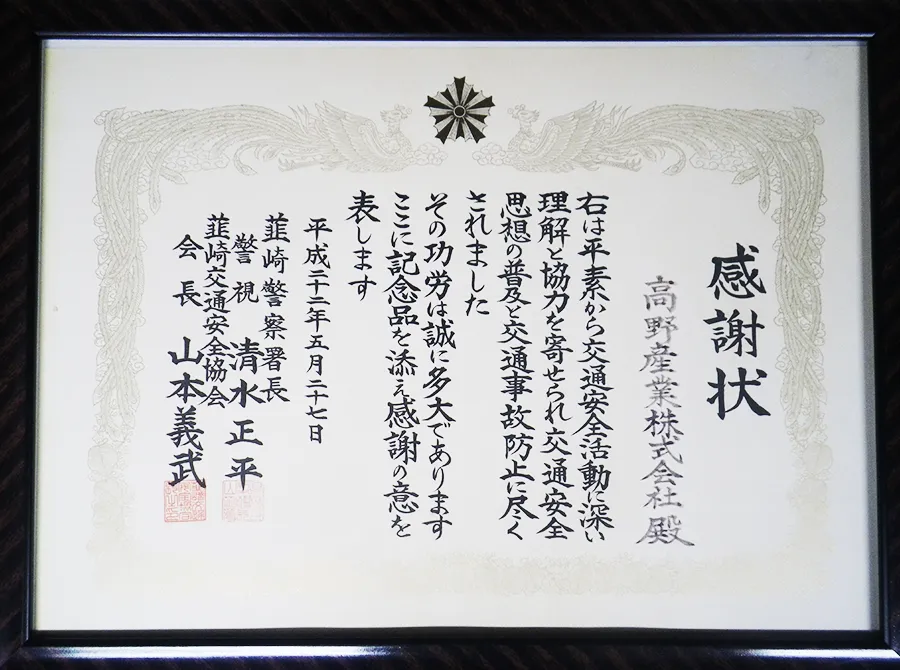 感謝状
高野産業株式会社 殿
右は平素から交通安全活動に深い
理解と協力を寄せられ交通安全
思想の普及と交通事故防止に尽く
されました
その功労は誠に多大であります
ここに記念品を添え感謝の意を
表します
平成二十二年五月二十七日
韮崎警察署長
警視 清水正平
韮崎交通安全協会
会長 山本義武